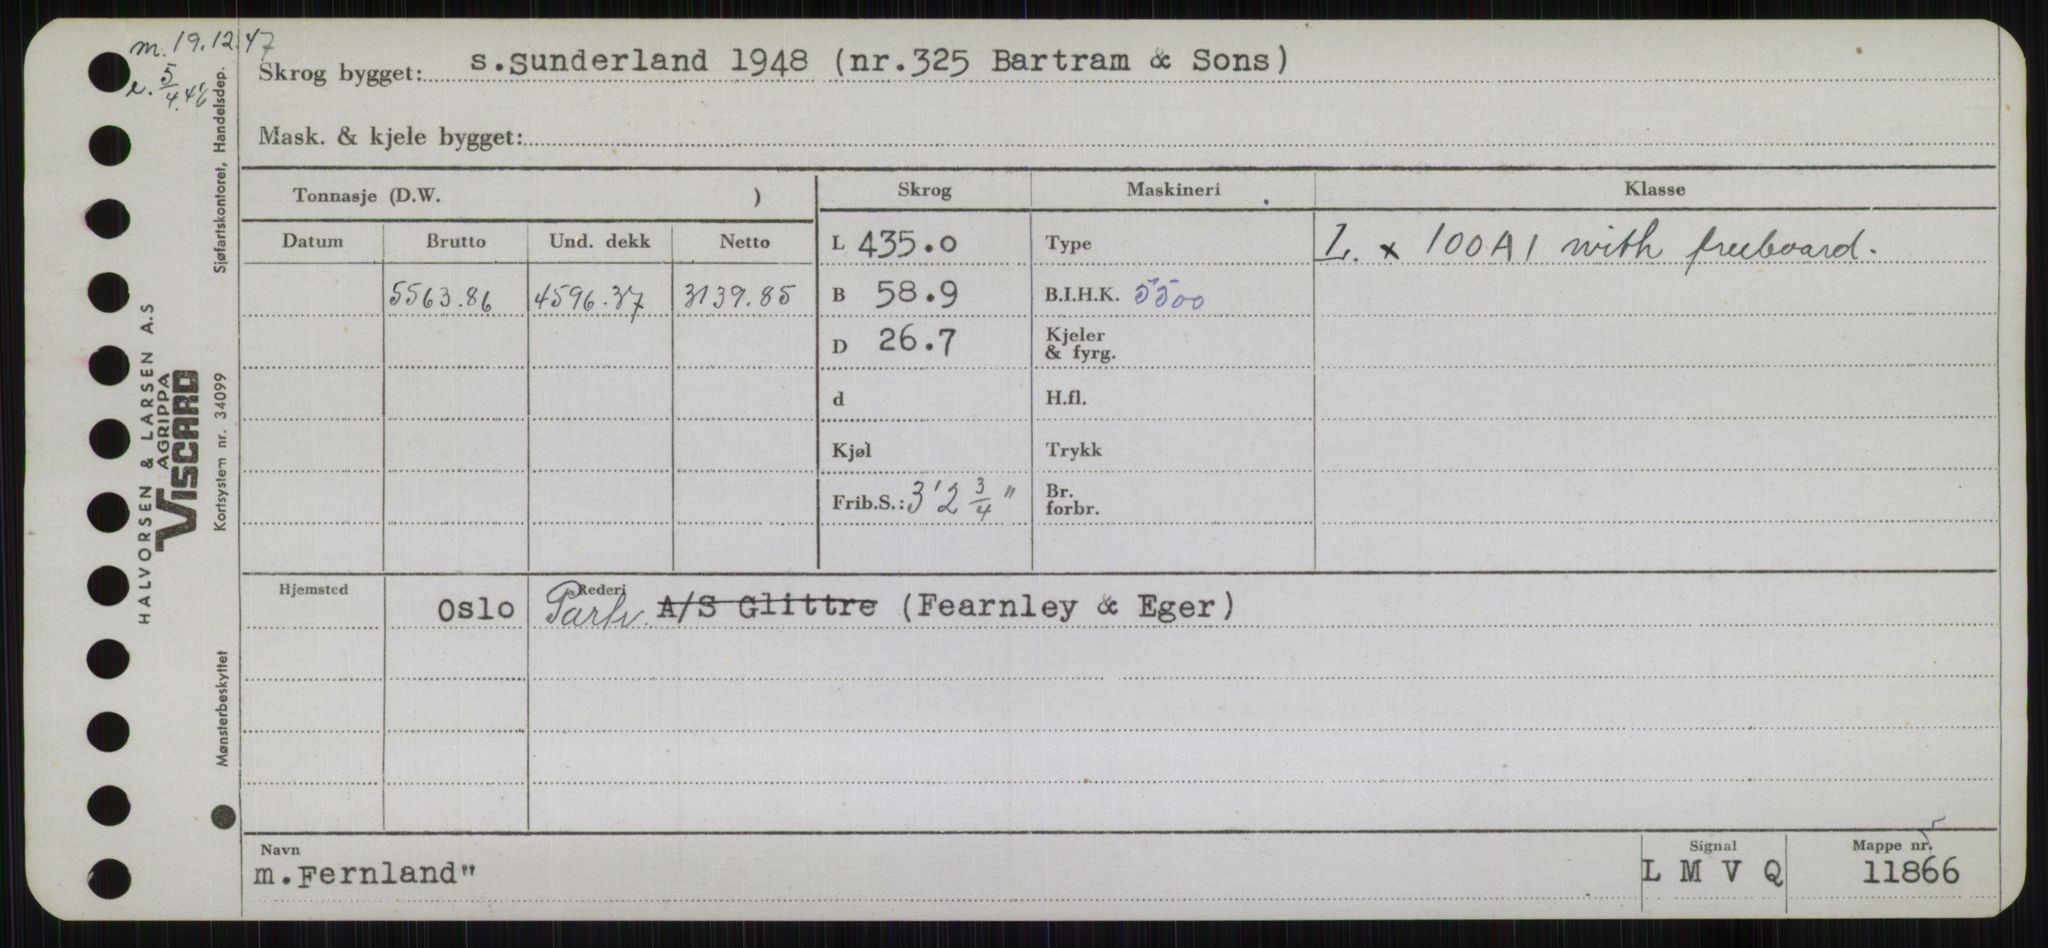 m. 19.12.47
e. 5/4.48
Skrog bygget: s.Sunderland 1948 (nr.325 Bartram & Sons)
Mask. & kjele bygget:
Tonnasje (D.W. )
Skrog Maskineri Klasse
Datum Brutto Und. dekk Netto
L 435.0 Type 1. x 100A1 with freeboard.
5563.86 4596.37 3139.85 B 58.9 B.I.H.K. 5500
D 26.7 Kjeler
& fyrg.
d H.fl.
Kjøl Trykk
Frib.S.: 3'2 3/4" Br.
forbr.
Hjemsted Rederi
Oslo Partr. A/S Glittre (Fearnley & Eger)
Navn Signal Mappe nr.
m.Fernland" L M V Q 11866
HALVORSEN & LARSEN A.S
AGRIPPA
VISCARD
Sjøfartskontoret, Handelsdep.
Kortsystem nr. 34099
Mønsterbeskyttet